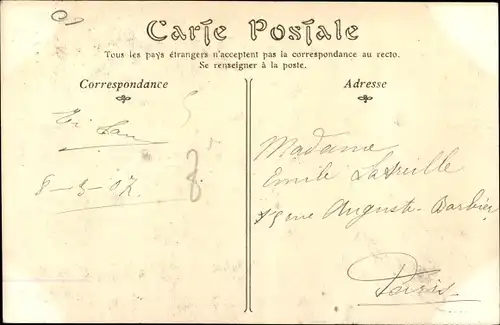 Carte Postale
Tous les pays étrangers n'acceptent pas la correspondance au recto.
Se renseigner à la poste.
Correspondance
8-3-07
Adresse
Madame
Emile
15 rue Auguste-Barbier
Paris